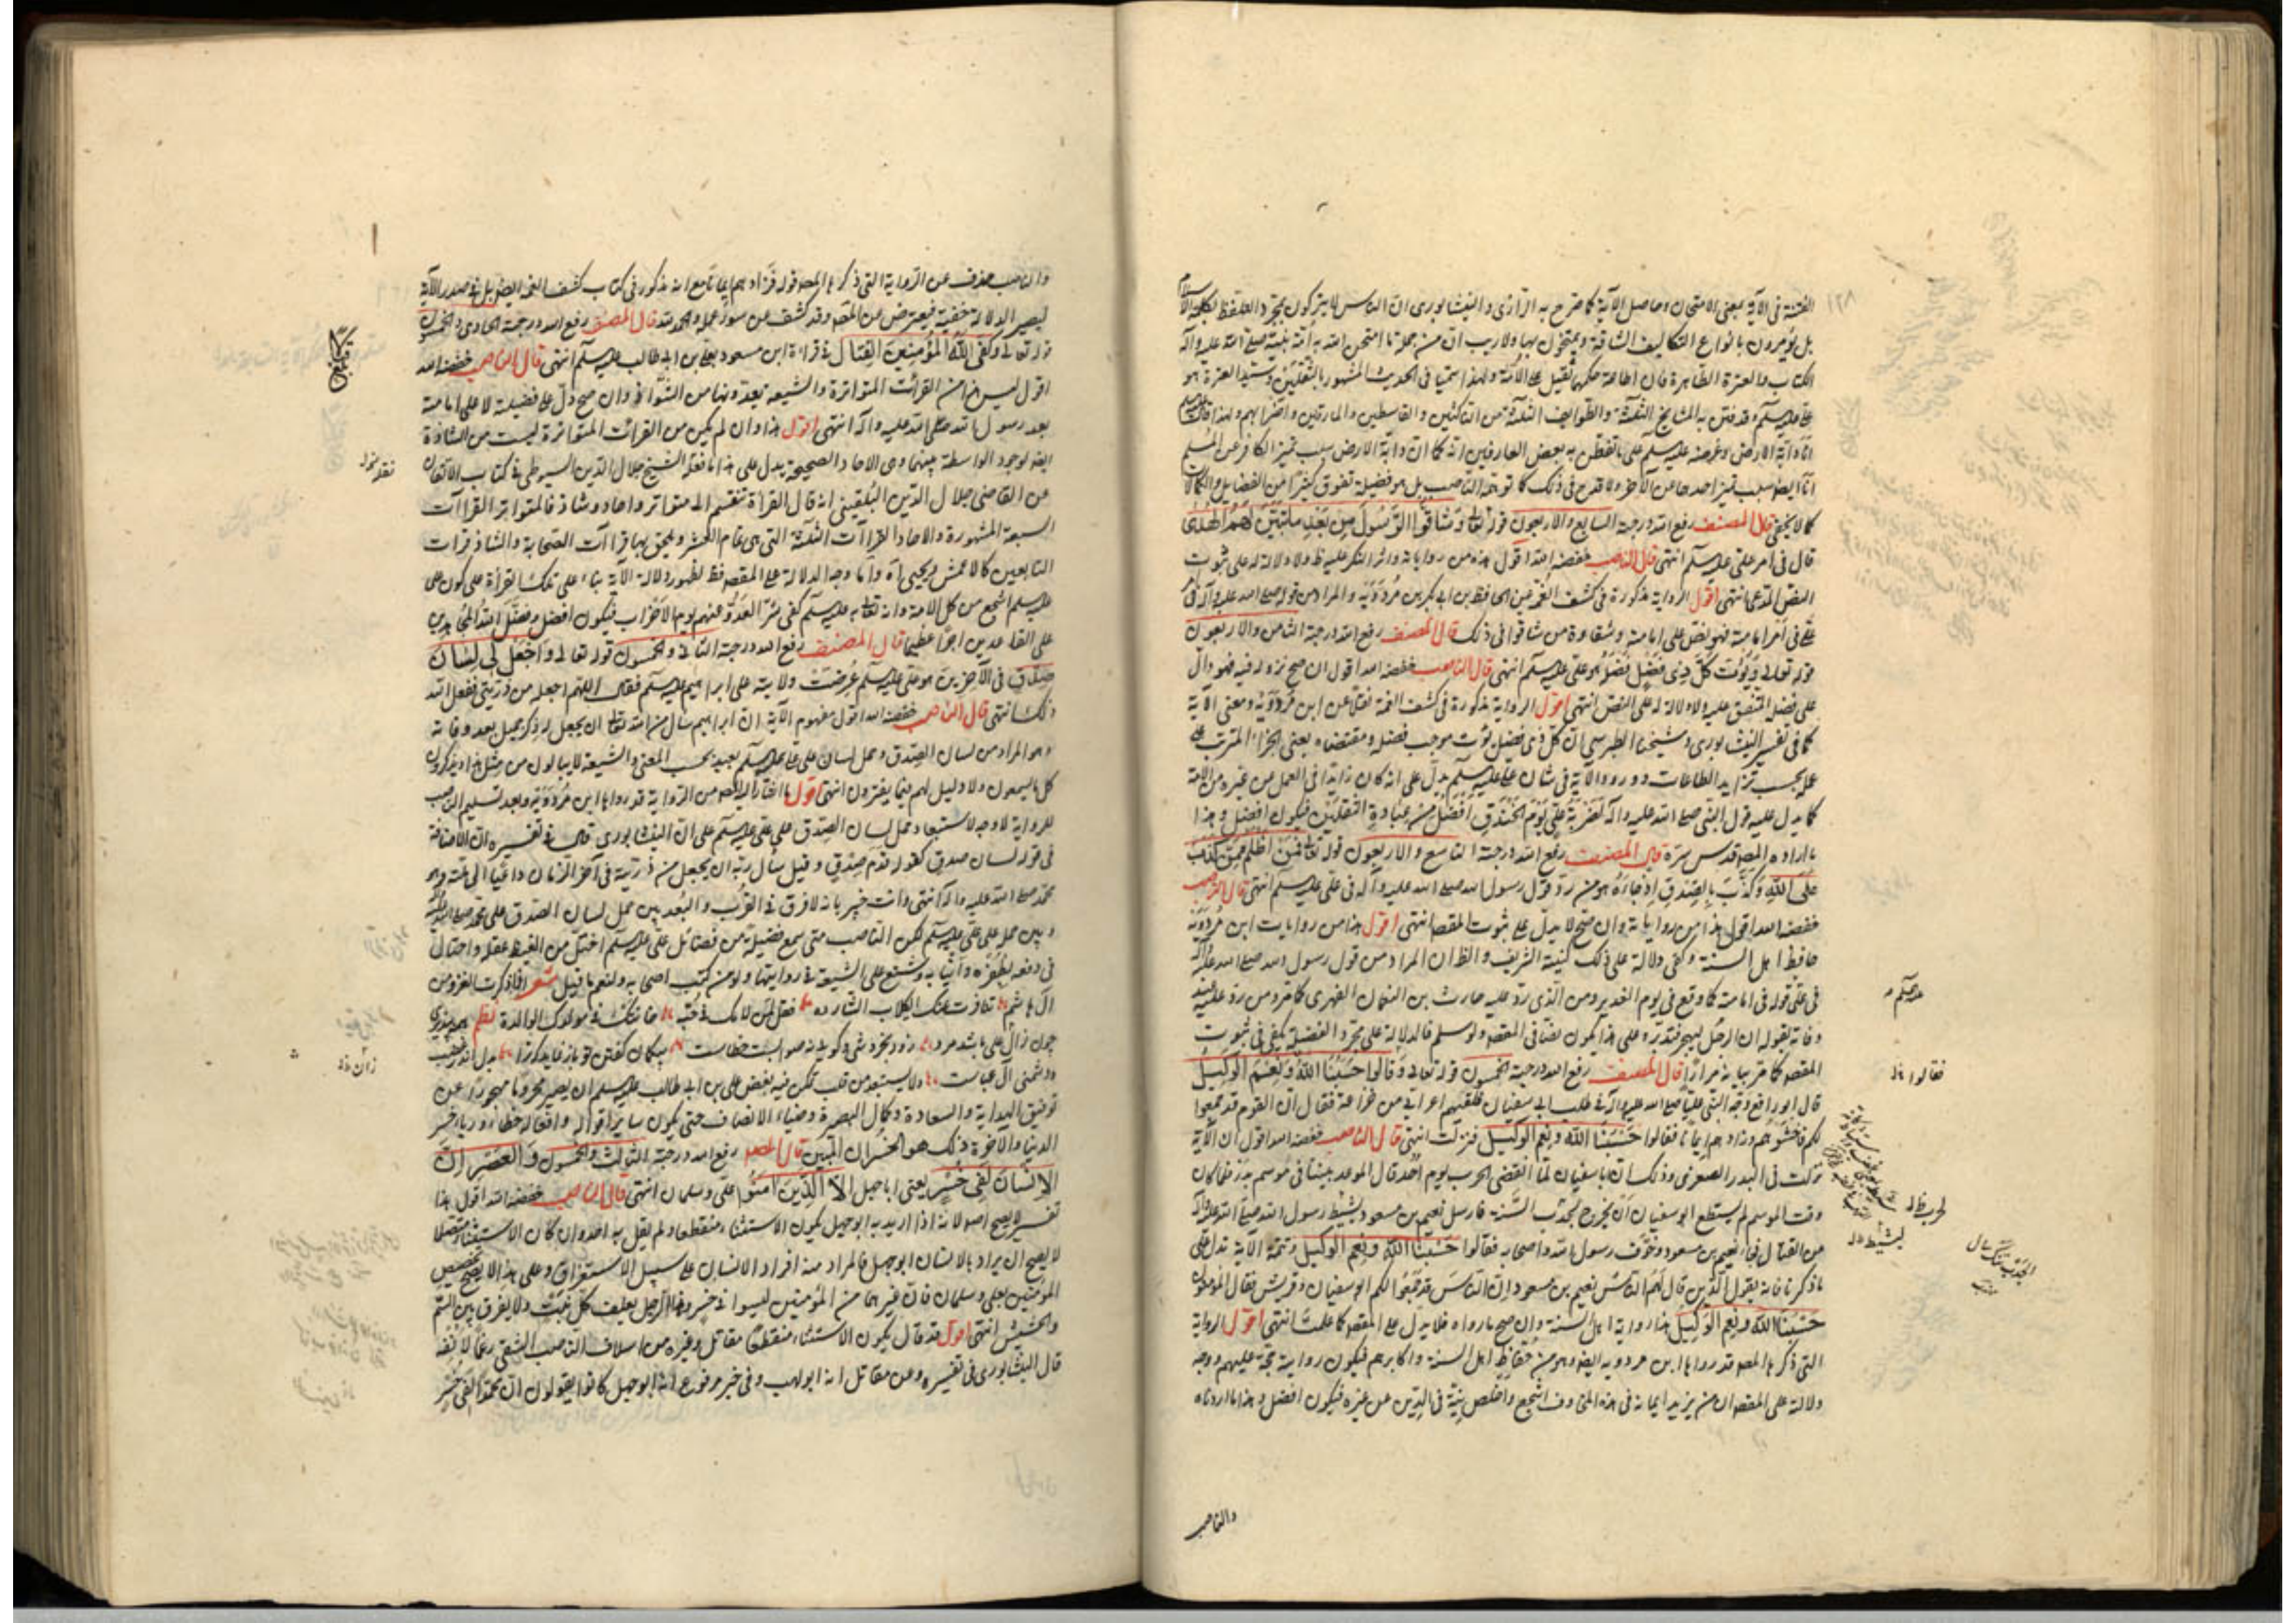 ١٢٨
الفتنة فى الآية بمعنى الامتحان وحاصل الآية كما صرح به الرازى والنيشابورى ان الناس لا يتركون بمجرد التلفظ بكلمة الاسلام
بل يؤمرون بانواع التكاليف الشاقة ويمتحنون بها ولا ريب ان من جملة ما امتحن الله به امة نبيه صلى الله عليه وآله
الكتاب والعترة الطاهرة فان اطاعة حكمهما ثقيل على الامة ولهذا سميا فى الحديث المشهور بالثقلين وسيد العترة هو
على عليه السلم وقد فتن به المشايخ الثلثة والطوايف الثلثة من الناكثين والقاسطين والمارقين واضرابهم ولهذا قال عليه السلم
انا دابة الارض وغرضه عليه السلم على ما تفطن به بعض العارفين انه كما ان دابة الارض سبب تميز الكافر عن المسلم
انا ايضا سبب تميز احدهما عن الآخر ولا قدح فى ذلك كما توهمه الناصب بل هو فضيلة تفوق كثيرا من الفضايل والكمالات
كما لا يخفى قال المصنف رفع الله درجته السابع والاربعون قوله تعالى وَشَاقُّوا الرَّسُولَ مِن بَعْدِ مَا تَبَيَّنَ لَهُمُ الْهُدَى
قال فى امر على عليه السلم انتهى قال الناصب خفضه الله اقول هذه من رواياته واثر النكر عليه ظ ولا دلالة له على ثبوت
النص المدعى انتهى اقول الرواية مذكورة فى كشف الغمة عن الحافظ بن ابى بكر بن مردويه والمراد من قوله صلى الله عليه وآله فى
على فى امر امامته فهو نص على امامته وشقاوة من شاقوا فى ذلك قال المصنف رفع الله درجته الثامن والاربعون
قوله تعالى وَيُؤْتِ كُلَّ ذِى فَضْلٍ فَضْلَهُ هو على عليه السلم انتهى قال الناصب خفضه الله اقول ان صح نزوله فيه فهو دال
على فضله المتفق عليه ولا دلالة له على النص انتهى اقول الرواية مذكورة فى كشف الغمة نقلا عن ابن مردويه ومعنى الآية
كما فى تفسير النيشابورى وشيخنا الطبرسى ان كل ذى فضل يؤت موجب فضله ومقتضاه يعنى الجزاء المترتب على
عمله بحسب تزايد الطاعات وورود الآية فى شان على عليه السلم يدل على انه كان زايدا فى العمل من غيره من الامة
كما يدل عليه قول النبى صلى الله عليه وآله لضربة على يوم الخندق افضل من عبادة الثقلين فيكون افضل وهذا
ما اراده المصه قدس سره قال المصنف رفع الله درجته التاسع والاربعون قوله تعالى فَمَنْ اَظْلَمُ مِمَّنْ كَذَبَ
عَلَى اللهِ وَكَذَّبَ بِالصِّدْقِ اِذْ جَاءَهُ هو من رد قول رسول الله صلى الله عليه وآله فى على عليه السلم انتهى قال الناصب
خفضه الله اقول هذا من رواياته وان صح لا يدل على ثبوت المقصه انتهى اقول هذا من روايات ابن مردويه
حافظ اهل السنة وكفى دلالة على ذلك كنيته الشريف والظ ان المراد من قول رسول الله صلى الله عليه وآله
فى على قوله فى امامته كما وقع فى يوم الغدير ومن الذى رد عليه حارث بن النعمان الفهرى كما مر ومن رد عليه عند
وفاته بقوله ان الرجل ليهجر فتدبر وعلى هذا يكون نصا فى المقصه ولو سلم فالدلالة على مجرد الفضيلة يكفى فى ثبوت
المقصه كما مر بيانه مرارا قال المصنف رفع الله درجته الخمسون قوله تعالى وَقَالُوا حَسْبُنَا اللهُ وَنِعْمَ الْوَكِيلُ
قال ابو رافع وجه النبى عليا صلى الله عليه وآله فى طلب ابى سفيان فلقيهم اعرابى من خزاعة فقال ان القوم قد جمعوا
لكم فاخشوهم وزادهم ايمانا فقالوا حَسْبُنَا الله وَنِعْمَ الْوَكِيلُ فنزلت انتهى قال الناصب خفضه الله اقول ان الآية
نزلت فى البدر الصغرى وذلك ان باسفيان لما انقضى الحرب يوم احد قال الموعد بيننا فى موسم بدر فلما كان
وقت الموسم لم يستطع ابو سفيان ان يخرج لجدب السنة فارسل نعيم بن مسعود يثبط رسول الله صلى الله عليه وآله
من القتال فجاء نعيم بن مسعود وخوف رسول الله واصحابه فقالوا حَسْبُنَا الله وَنِعْمَ الْوَكِيلُ وتتمة الآية تدل على
ما ذكرنا فانه يقول الذين قال لهم الناس نعيم بن مسعود ان الناس قد جمعوا لكم ابو سفيان وقريش فقال المؤمنون
حَسْبُنَا الله وَنِعْمَ الْوَكِيلُ هذا رواية اهل السنة وان صح ما رواه فلا يدل على المقصه كما علمت انتهى اقول الرواية
التى ذكرها المصه قد رواها ابن مردويه ايضا وهو من حفاظ اهل السنة واكابرهم فيكون روايته حجة عليهم ووجه
دلالته على المقصه ان من يزيد ايمانه فى هذه المخاوف اشجع واخلص نية فى الدين عن غيره فيكون افضل وهذا ما اردناه
عليه السلم
فقالوا
الحرب
يثبط
والناصب
والناصب حذف عن الرواية التى ذكرها المصه قوله فزادهم ايمانا مع انه مذكور فى كتاب كشف الغمة ايضا بل فى صدر الآية
ليصير الدلالة خفية فيعترض عن المصه وقد كشف عن سوء عمله والحمد لله قال المصنف رفع الله درجته الحادى والخمسون
قوله تعالى وَكَفَى اللهُ الْمُؤْمِنِينَ الْقِتَالَ فى قراءة ابن مسعود بعلى بن ابى طالب عليه السلم انتهى قال الناصب خفضه الله
اقول ليس هذا من القرائت المتواترة والشيعة يعدونها من الشواذ وان صح دل على فضيلته لا على امامته
بعد رسول الله صلى الله عليه وآله انتهى اقول هذا وان لم يكن من القرائت المتواترة ليست من الشاذة
ايضا لوجود الواسطة بينهما وهى الاحاد الصحيحة يدل على هذا ما نقله الشيخ جلال الدين السيوطى فى كتاب الاتقان
عن القاضى جلال الدين البلقينى انه قال القراءة تنقسم الى متواتر واحاد وشاذ فالمتواتر القراآت
السبعة المشهورة والاحاد القراآت الثلثة التى هى تمام العشر ويلحق بها قراآت الصحابة والشاذ قرات
التابعين كالاعمش ويحيى آه واما وجه الدلالة على المقصه فظ لظهور دلالة الآية بناء على تلك القراءة على كون على
عليه السلم اشجع من كل الامة وانه تعالى به عليه السلم كفى شر العدو عنهم يوم الاحزاب فيكون افضل وفضل الله المجاهدين
على القاعدين اجرا عظيما قال المصنف رفع الله درجته الثانى والخمسون قوله تعالى وَاجْعَلْ لِى لِسَانَ
صِدْقٍ فى الآخِرِينَ هو على عليه السلم عرضت ولايته على ابراهيم عليه السلم فقال اللهم اجعله من ذريتى ففعل الله
ذلك انتهى قال الناصب خفضه الله اقول مفهوم الآية ان ابراهيم سال من الله تعالى ان يجعل له ذكر جميل بعد وفاته
وهو المراد من لسان الصدق وحمل لسان على على عليه السلم بعيد بحسب المعنى والشيعة لا يبالون من مثل هذا ويذكرون
كل ما يسمعون ولا دليل لهم فيما يفترون انتهى اقول ما اختاره المصه من الرواية قد رواها ابن مردويه وبعد تسليم الناصب
للرواية لا وجه لاستبعاد حمل لسان الصدق على على عليه السلم على ان النيشابورى قال فى تفسيره ان الاضافة
فى قوله لسان صدق كقوله قدم صدق وقيل سأل ربه ان يجعل من ذريته فى آخر الزمان داعيا الى ملته وهو
محمد صلى الله عليه وآله انتهى وانت خبير بانه لا فرق فى القرب والبعد بين حمل لسان الصدق على محمد صلى الله عليه وآله
وبين حمله على على عليه السلم لكن الناصب متى سمع فضيلة من فضائل على عليه السلم اختل من الغيظ عقله واحتال
فى دفعه بظفره وانيابه وشنع على الشيعة فى روايتها ولو من كتب اصحابه ولنعم ما قيل شعر اذا ذكرت الغر من
آل هاشم تنافرت عنك الكلاب الشارده فقل لمن لامك فى حبه خانتك فى مولدك الوالدة نظم
ودشمنى آل عباست ولا يستبعد من قلب تمكن فيه بغض على بن ابى طالب عليه السلم ان يصير محروما مهجورا عن
توفيق الهداية والسعادة وكمال البصيرة وضياء الانصاف حتى يكون ساير اقواله وافعاله خطاء ورياء خسر
الدنيا والآخرة ذلك هو الخسران المبين قال المصه رفع الله درجته الثالث والخمسون وَالعَصْرِ اِنَّ
الاِنْسَانَ لَفِى خُسْرٍ يعنى اباجهل اِلَّا الَّذِينَ اٰمَنُوا على وسلمان انتهى قال الناصب خفضه الله اقول هذا
تفسير لا يصح اصلا لانه اذا اريد به ابو جهل يكون الاستثناء منقطعا ولم يقل به احد وان كان الاستثناء متصلا
لا يصح ان يراد بالانسان ابو جهل فالمراد منه افراد الانسان على سبيل الاستغراق وعلى هذا لا يصح تخصيص
المؤمنين بعلى وسلمان فان غيرهما من المؤمنين ليسوا فى خسر وهذا الرجل يعلف كل نبت ولا يفرق بين السم
والحشيش انتهى اقول قد قال بكون الاستثناء منقطعا مقاتل وغيره من اسلاف الناصب الشقى رغما لانفه
قال النيشابورى فى تفسيره وعن مقاتل انه ابو لهب وفى خبر مرفوع انه ابو جهل كانوا يقولون ان محمدا لفى خسر